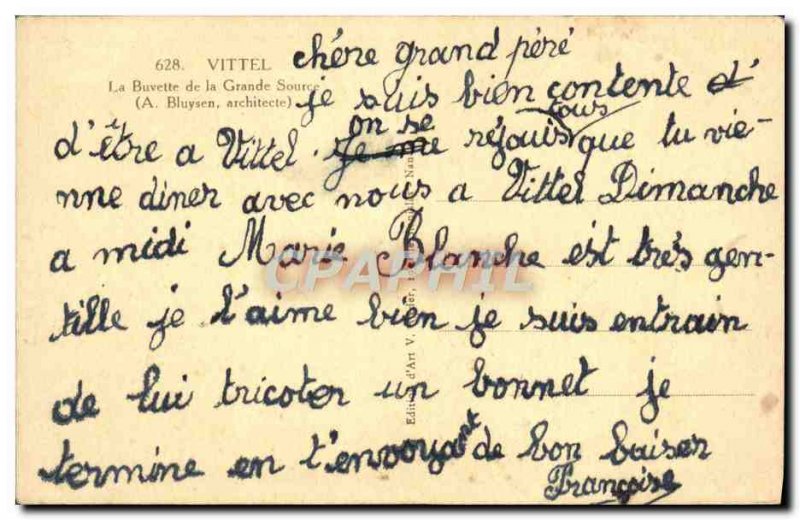 628. VITTEL
La Buvette de la Grande Source
(A. Bluysen, architecte)
chére grand péré
je suis bien contente d'
d'être a Vittel. on se réjouis tous que tu vie-
nne diner avec nous a Vittel Dimanche
a midi Marie Blanche est très gen-
tille je l'aime bien je suis entrain
de lui tricoter un bonnet je
termine en t'envoyant de bon baiser
Françoise
Je me
CPAPHIL
d'Art V.